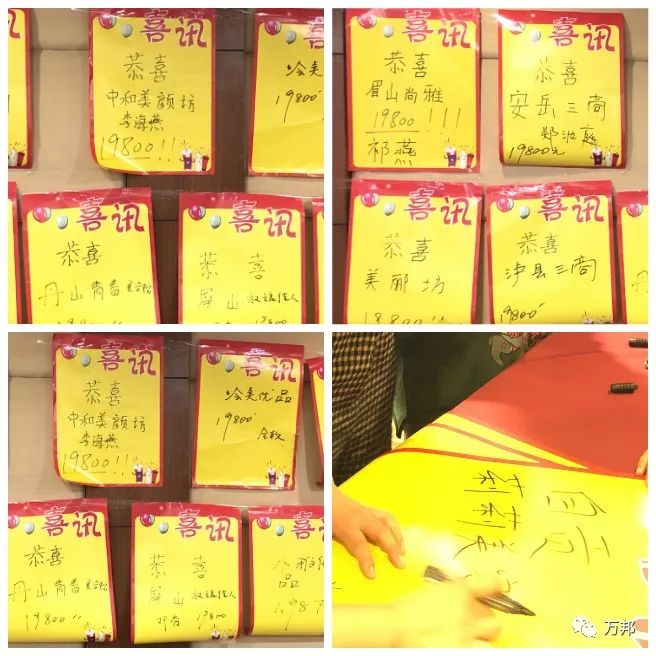 喜讯
恭喜
中和美颜坊
李海燕
19800!!
喜
冷美
19800
喜讯
恭喜
丹山青春
19800
喜讯
恭喜
屏山
喜讯
恭喜
眉山尚雅
19800!!!
祁燕
喜讯
恭喜
安岳三商
郑淑庭
19800元
喜讯
恭喜
美郦坊
19800
喜讯
恭喜
泸县三商
19800
喜讯
恭喜
中和美颜坊
李海燕
19800!!
喜讯
冷美优品
19800
全款
喜讯
恭喜
丹山青春
19800
喜讯
恭喜
屏山
19800
喜讯
品
自贡
万邦